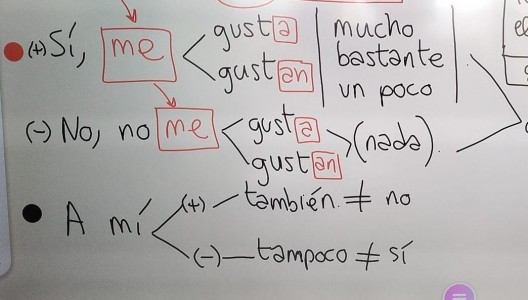 (+) Sí, me gusta mucho
gustan bastante
un poco
(-) No, no me gusta (nada).
gustan
A mí (+) también ≠ no
(-) tampoco ≠ sí